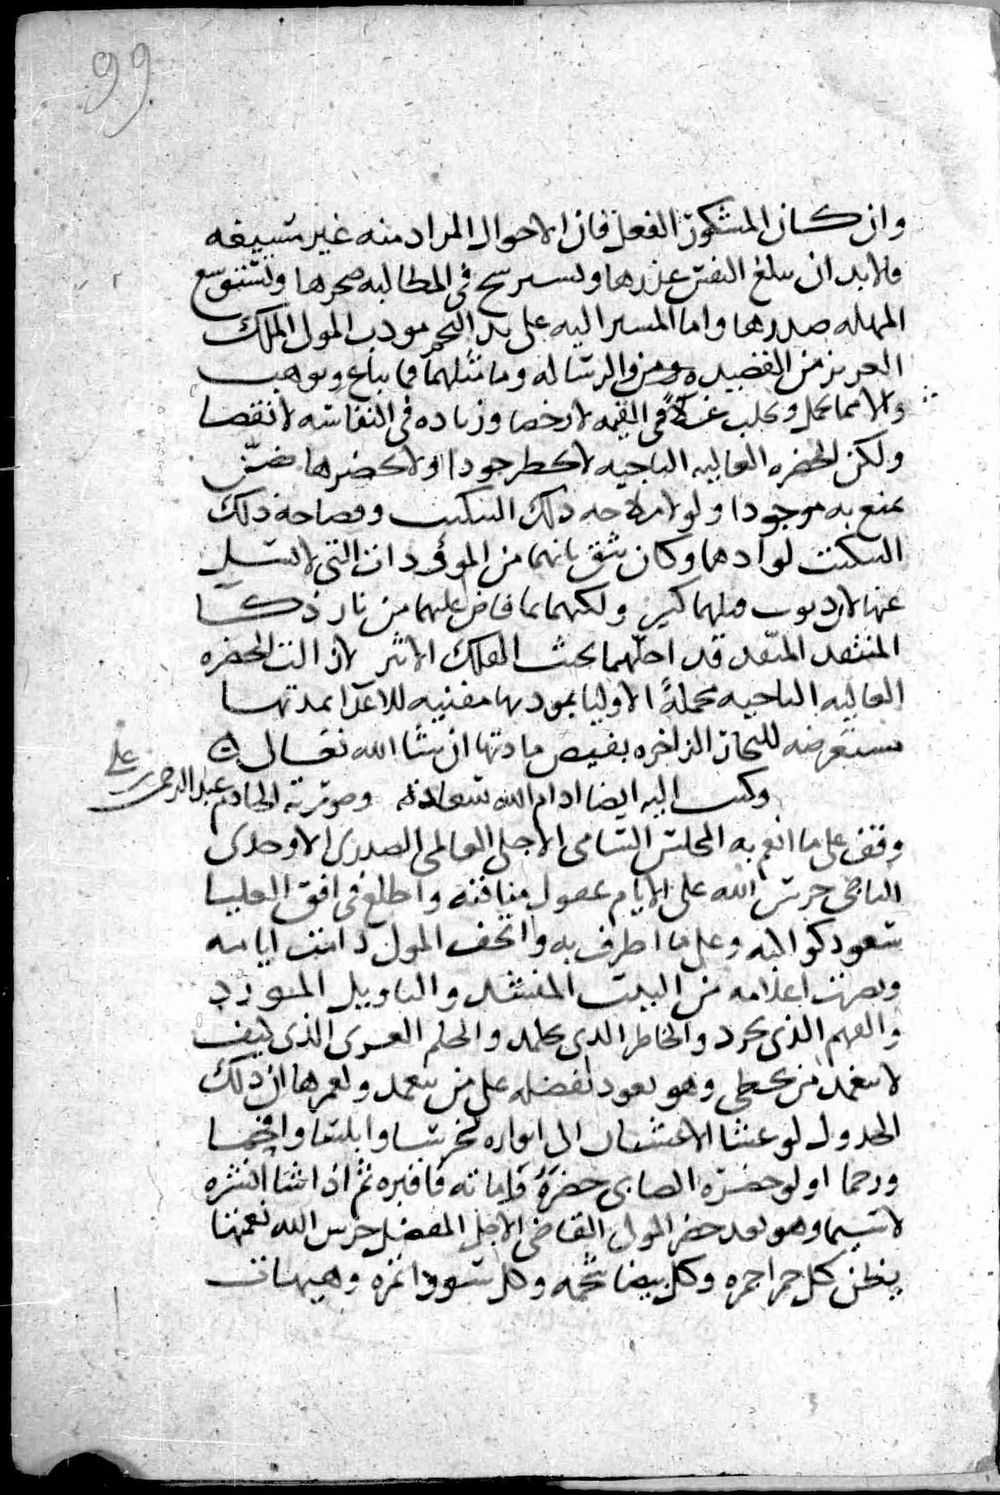 99
وان كان المشكور الفعل فان الاحوال المراد منه غير متسيفه
فلا بد ان تبلغ النفس عذرها وتستريح في المطالبه صحرها ويتسع
المهله صدرها واما المسير اليه على يد النجم مودب المولى الملك
العزيز من القصيده ومن والرساله وما مثلهما مما يباع ويوهب
ولا مما يحمل ويجلب في القيمه لا رخصا وزياده في النفاسه لا نقصا
ولكن الحضره العاليه التاجيه لا يحظر جودا ولا يحضرها ضن
يمنع به موجودا ولولا ملاحه ذلك السكيت وفصاحه ذلك
السكيت لوادهما وكان يثق بانهما من الموؤدات التي لا تسل
عنها لا ذنوب قبلهما كبر ولكنهما بما فاض عليهما من نار ذكا
المنتقد المتقد قد احلهما بحيث الفلك الاثير لا زالت الحضره
العاليه التاجيه مجملة الاوليا بمودتها مفنيه للاعدا بمدتها
مستعرضه للبحار الزاخره بفيض مادتها ان شا الله تعالى
وكتب اليه ايضا ادام الله سعادته وصورته الخادم عبد الرحيم بن علي
وقف على ما انعم به المجلس السامي الاجل العالمي الصدري الاوحدي
التاجي حرس الله على الايام عقول مناقبه واطلع في افق العليا
سعود كواكبه وعلى ما اطرف به واتحف المولى دامت ايامه
ونصرت اعلامه من البيت المنشد والتاويل المسدد
والفهم الذي يجرد والخاطر الذي والحلم الغزير الذي كيف
لا يتغمد من يخطي وهو يعود بفضله على من يتعمد ولعمرها ان ذلك
الجدول لو عشا الاعشيان الى انواره لخرسا وابلسا وافحما
ورحما او لو حضره الصابي حضرة فاماته فاقبره ثم اذا شا انشره
لا سيما وهو بعد حضر المولى القاضي الاجل المفضل حرس الله نعمتها
يظن كل حمرا جمره وكل بيضا شحمه وكل سودا تمره وهيهات